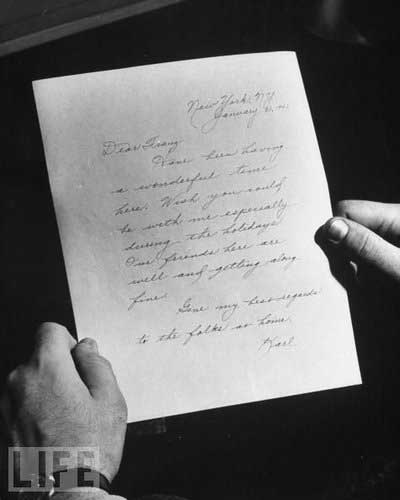 New York, N.Y.
January
Dear Franz
Have been having
a wonderful time
here. Wish you could
be with me especially
during the holidays
Our friends here are
well and getting along
fine.
Give my best regards
to the folks at home.
Karl
LIFE